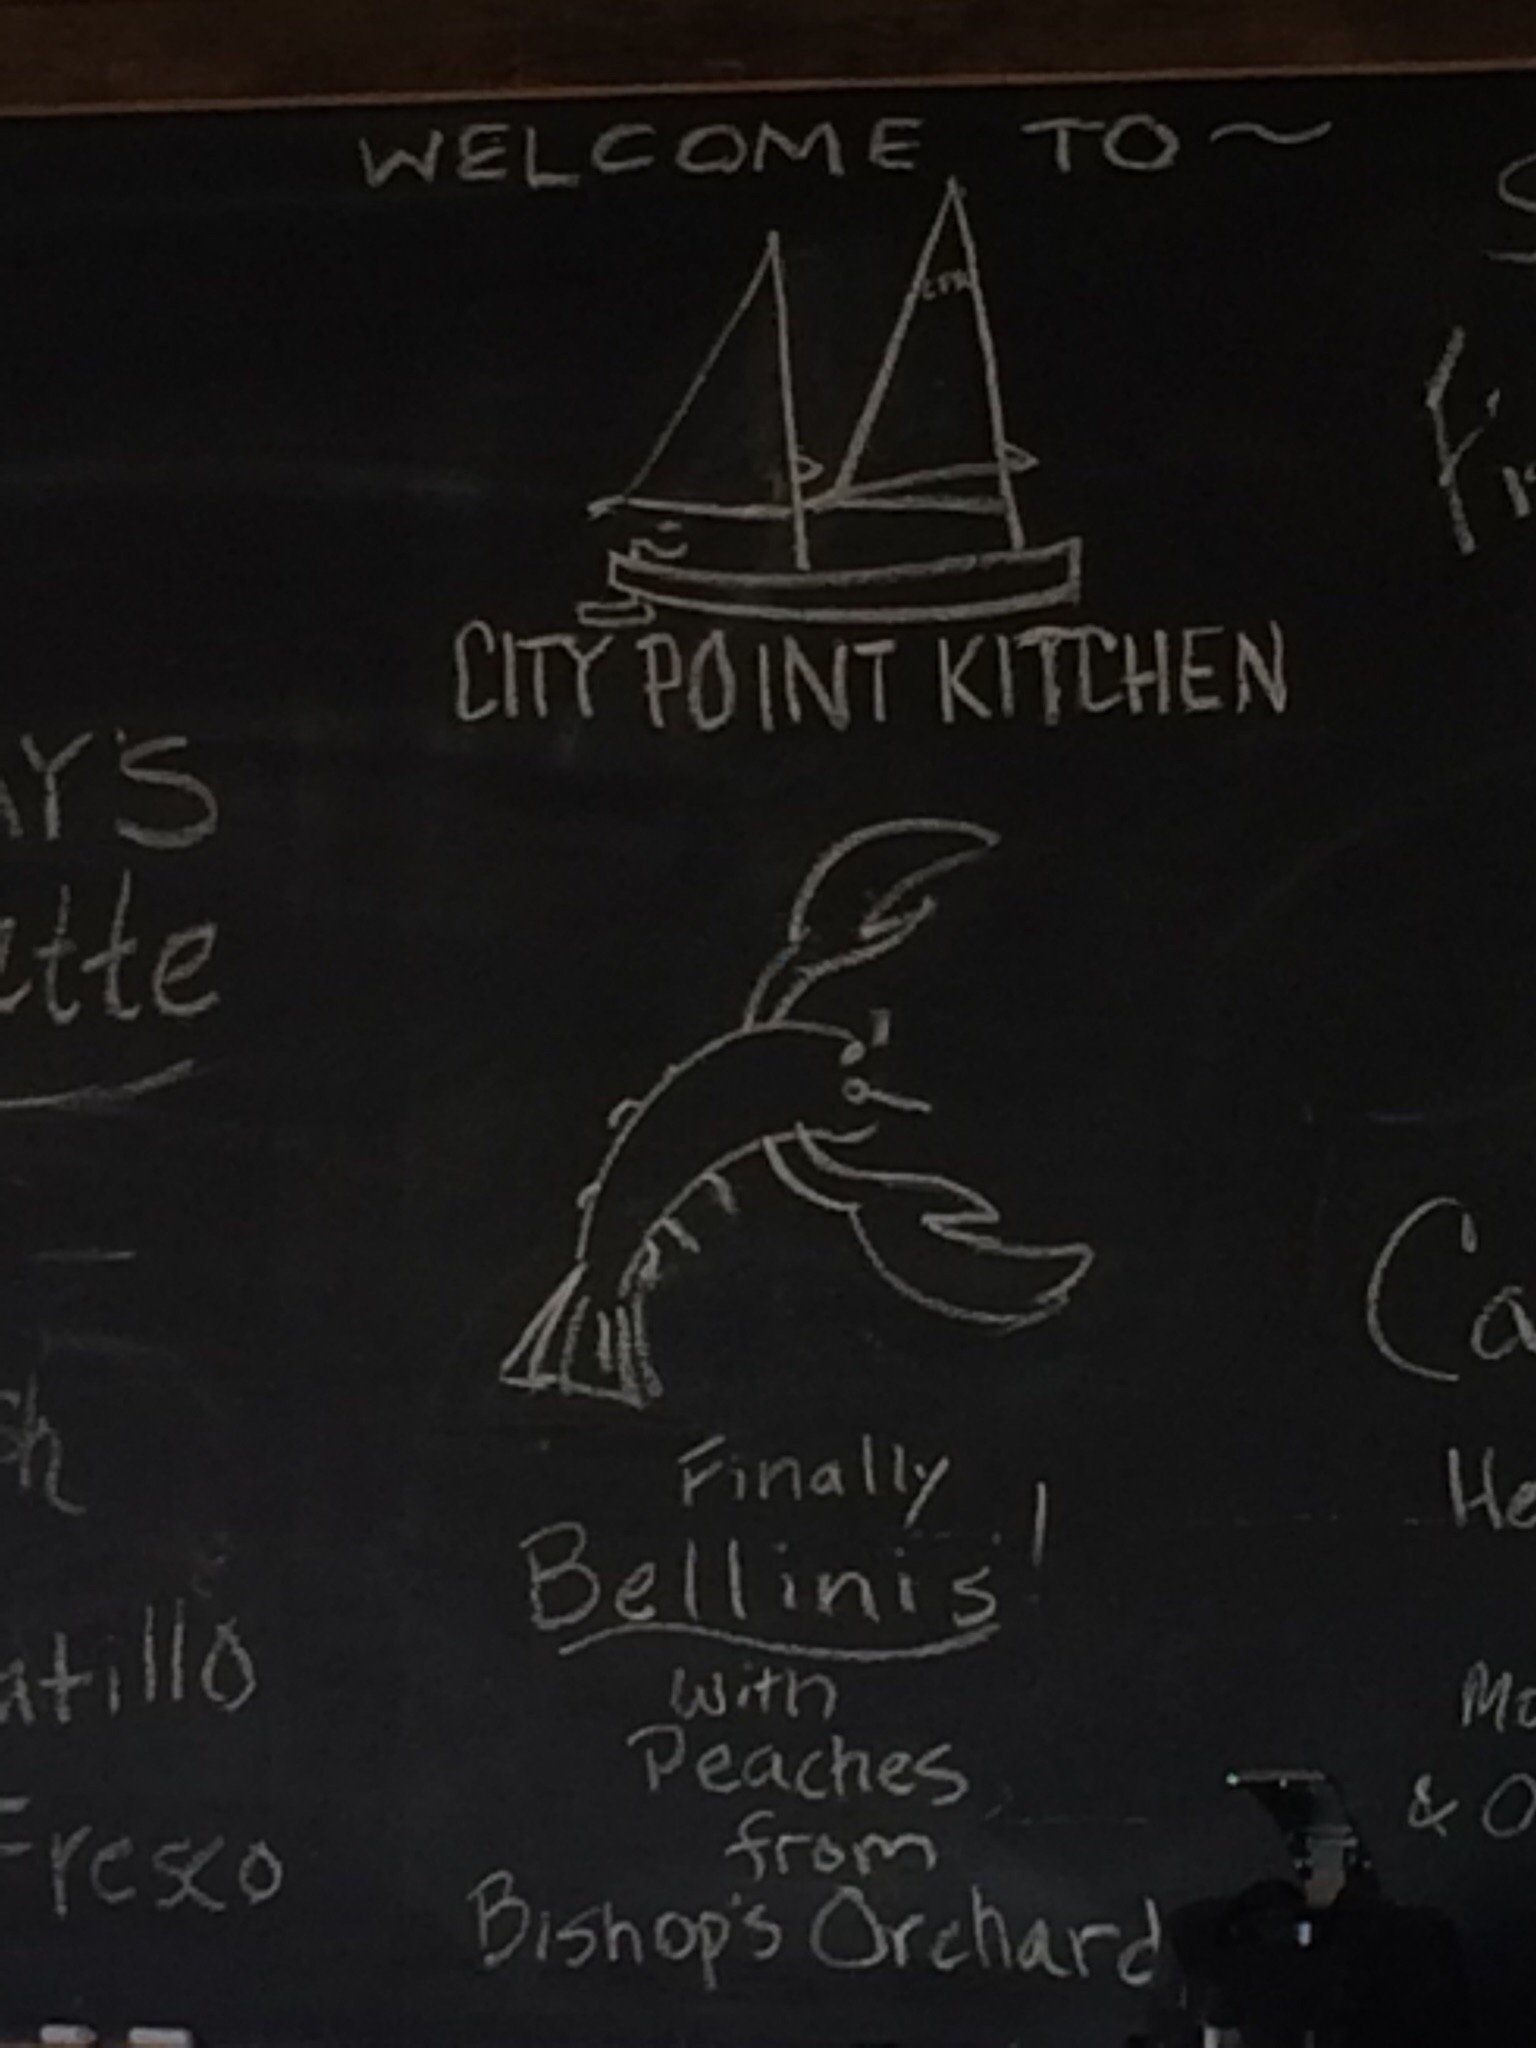 WELCOME TO~
CPK
CITY POINT KITCHEN
AY'S
ette
Finally
Bellinis!
with
Peaches
from
Bishop's Orchard
sh
atillo
Fresco
Ca
He
Mo
& O